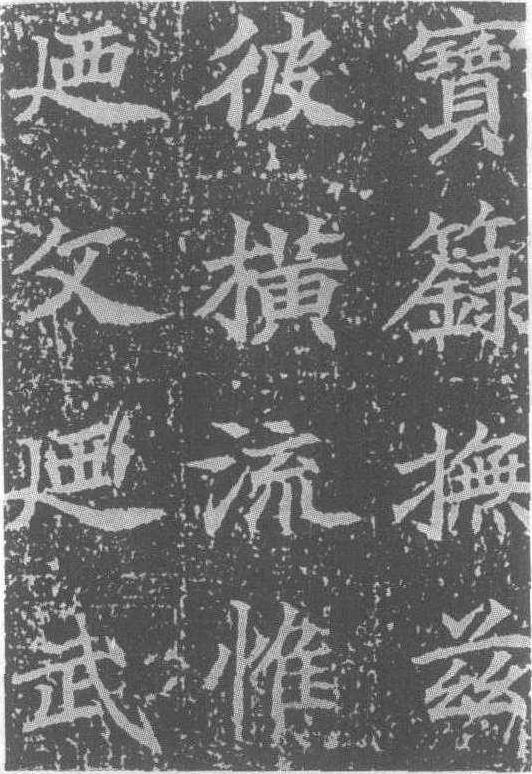 寶籙撫茲
彼橫流惟
廼文廼武